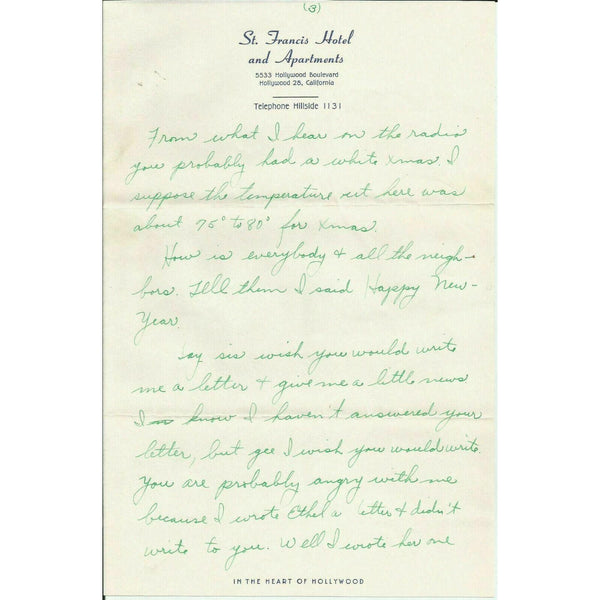 (3)
St. Francis Hotel
and Apartments
5533 Hollywood Boulevard
Hollywood 28, California
Telephone Hillside 1131
From what I hear on the radio
you probably had a white Xmas I
suppose the temperature out here was
about 75° to 80° for Xmas.
How is everybody & all the neigh-
bors. Tell them I said Happy New-
Year.
Say sis wish you would write
me a letter & give me a little news
I know I haven't answered your
letter, but gee I wish you would write.
You are probably angry with me
because I wrote Ethel a letter & didn't
write to you. Well I wrote her one
IN THE HEART OF HOLLYWOOD